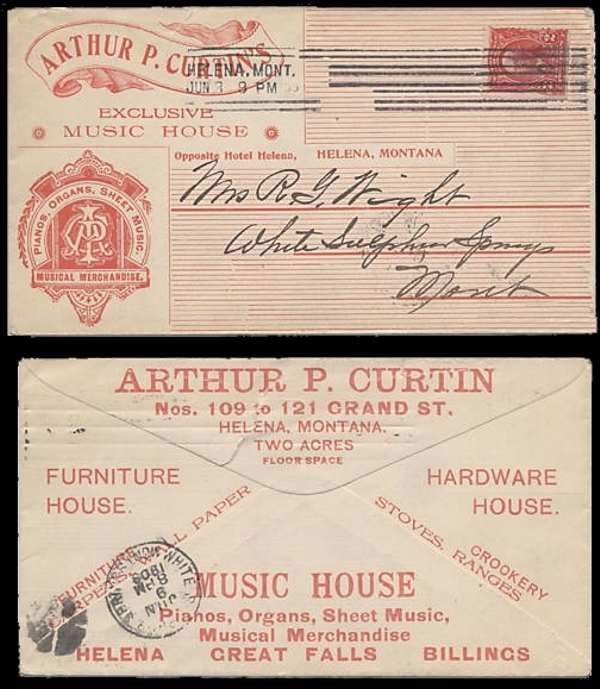 ARTHUR P. CURTIN'S
EXCLUSIVE
MUSIC HOUSE
Opposite Hotel Helena, HELENA, MONTANA
HELENA, MONT.
JUN 3 9 PM
PIANOS, ORGANS, SHEET MUSIC,
APC
MUSICAL MERCHANDISE.
Mrs R. G. Wight
White Sulphur Springs
Mont
ARTHUR P. CURTIN
Nos. 109 to 121 GRAND ST.
HELENA, MONTANA.
TWO ACRES
FLOOR SPACE
FURNITURE
HOUSE.
HARDWARE
HOUSE.
FURNITURE
CARPETS, WALL PAPER
CROCKERY
STOVES, RANGES
WHITE
JUN
8 PM
MUSIC HOUSE
Pianos, Organs, Sheet Music,
Musical Merchandise
HELENA GREAT FALLS BILLINGS